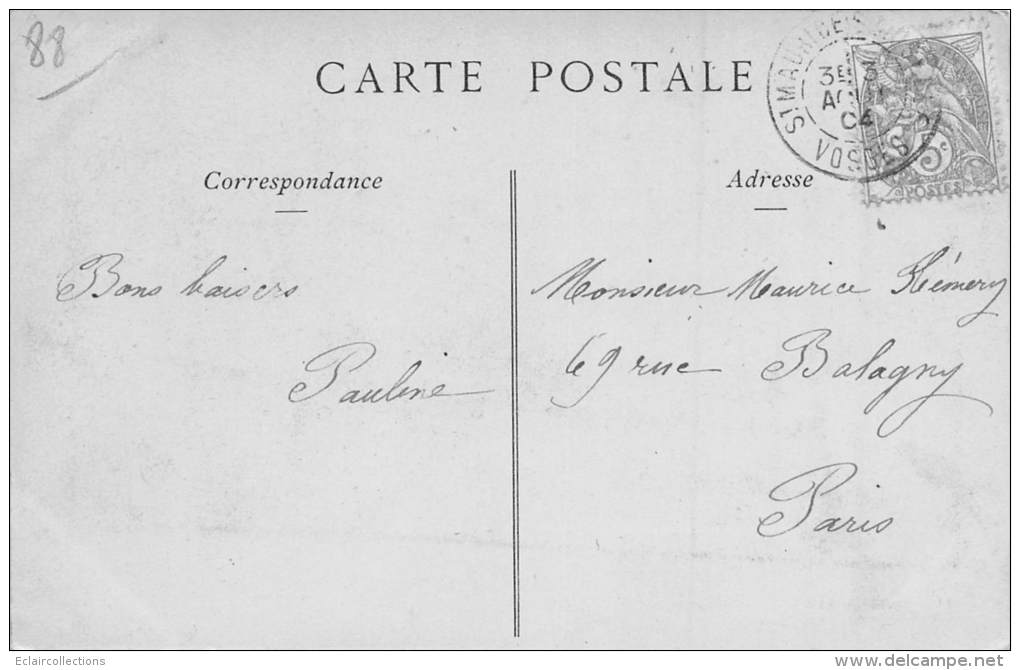 88
CARTE POSTALE
ST MAURICE
3E
AOUT
04
VOSGES
5c
POSTES
Correspondance
Adresse
Bons baisers
Pauline
Monsieur Maurice Hémery
69 rue Balagny
Paris
Eclaircollections
delcampe.net